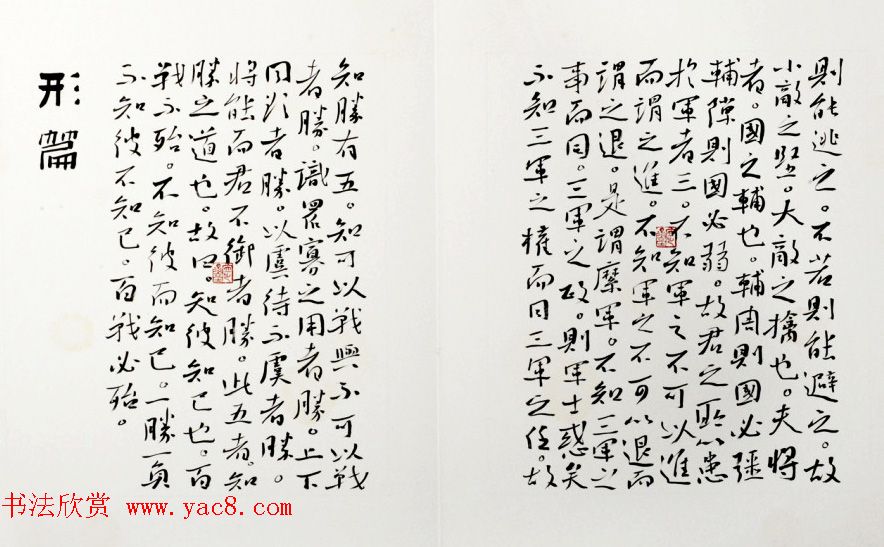 則能逃之。不若則能避之。故
小敵之堅。大敵之擒也。夫將
者。國之輔也。輔周則國必彊
輔隙則國必弱。故君之所以患
於軍者三。不知軍之不可以進
而謂之進。不知軍之不可以退而
謂之退。是謂縻軍。不知三軍之
事而同。三軍之政。則軍士惑矣
不知三軍之權而同三軍之任。故
知勝有五。知可以戰與不可以戰
者勝。識眾寡之用者勝。上下
同欲者勝。以虞待不虞者勝。
將能而君不御者勝。此五者。知
勝之道也。故曰。知彼知己也。百
戰不殆。不知彼而知己。一勝一負
不知彼不知己。百戰必殆。
形篇
书法欣赏 www.yac8.com